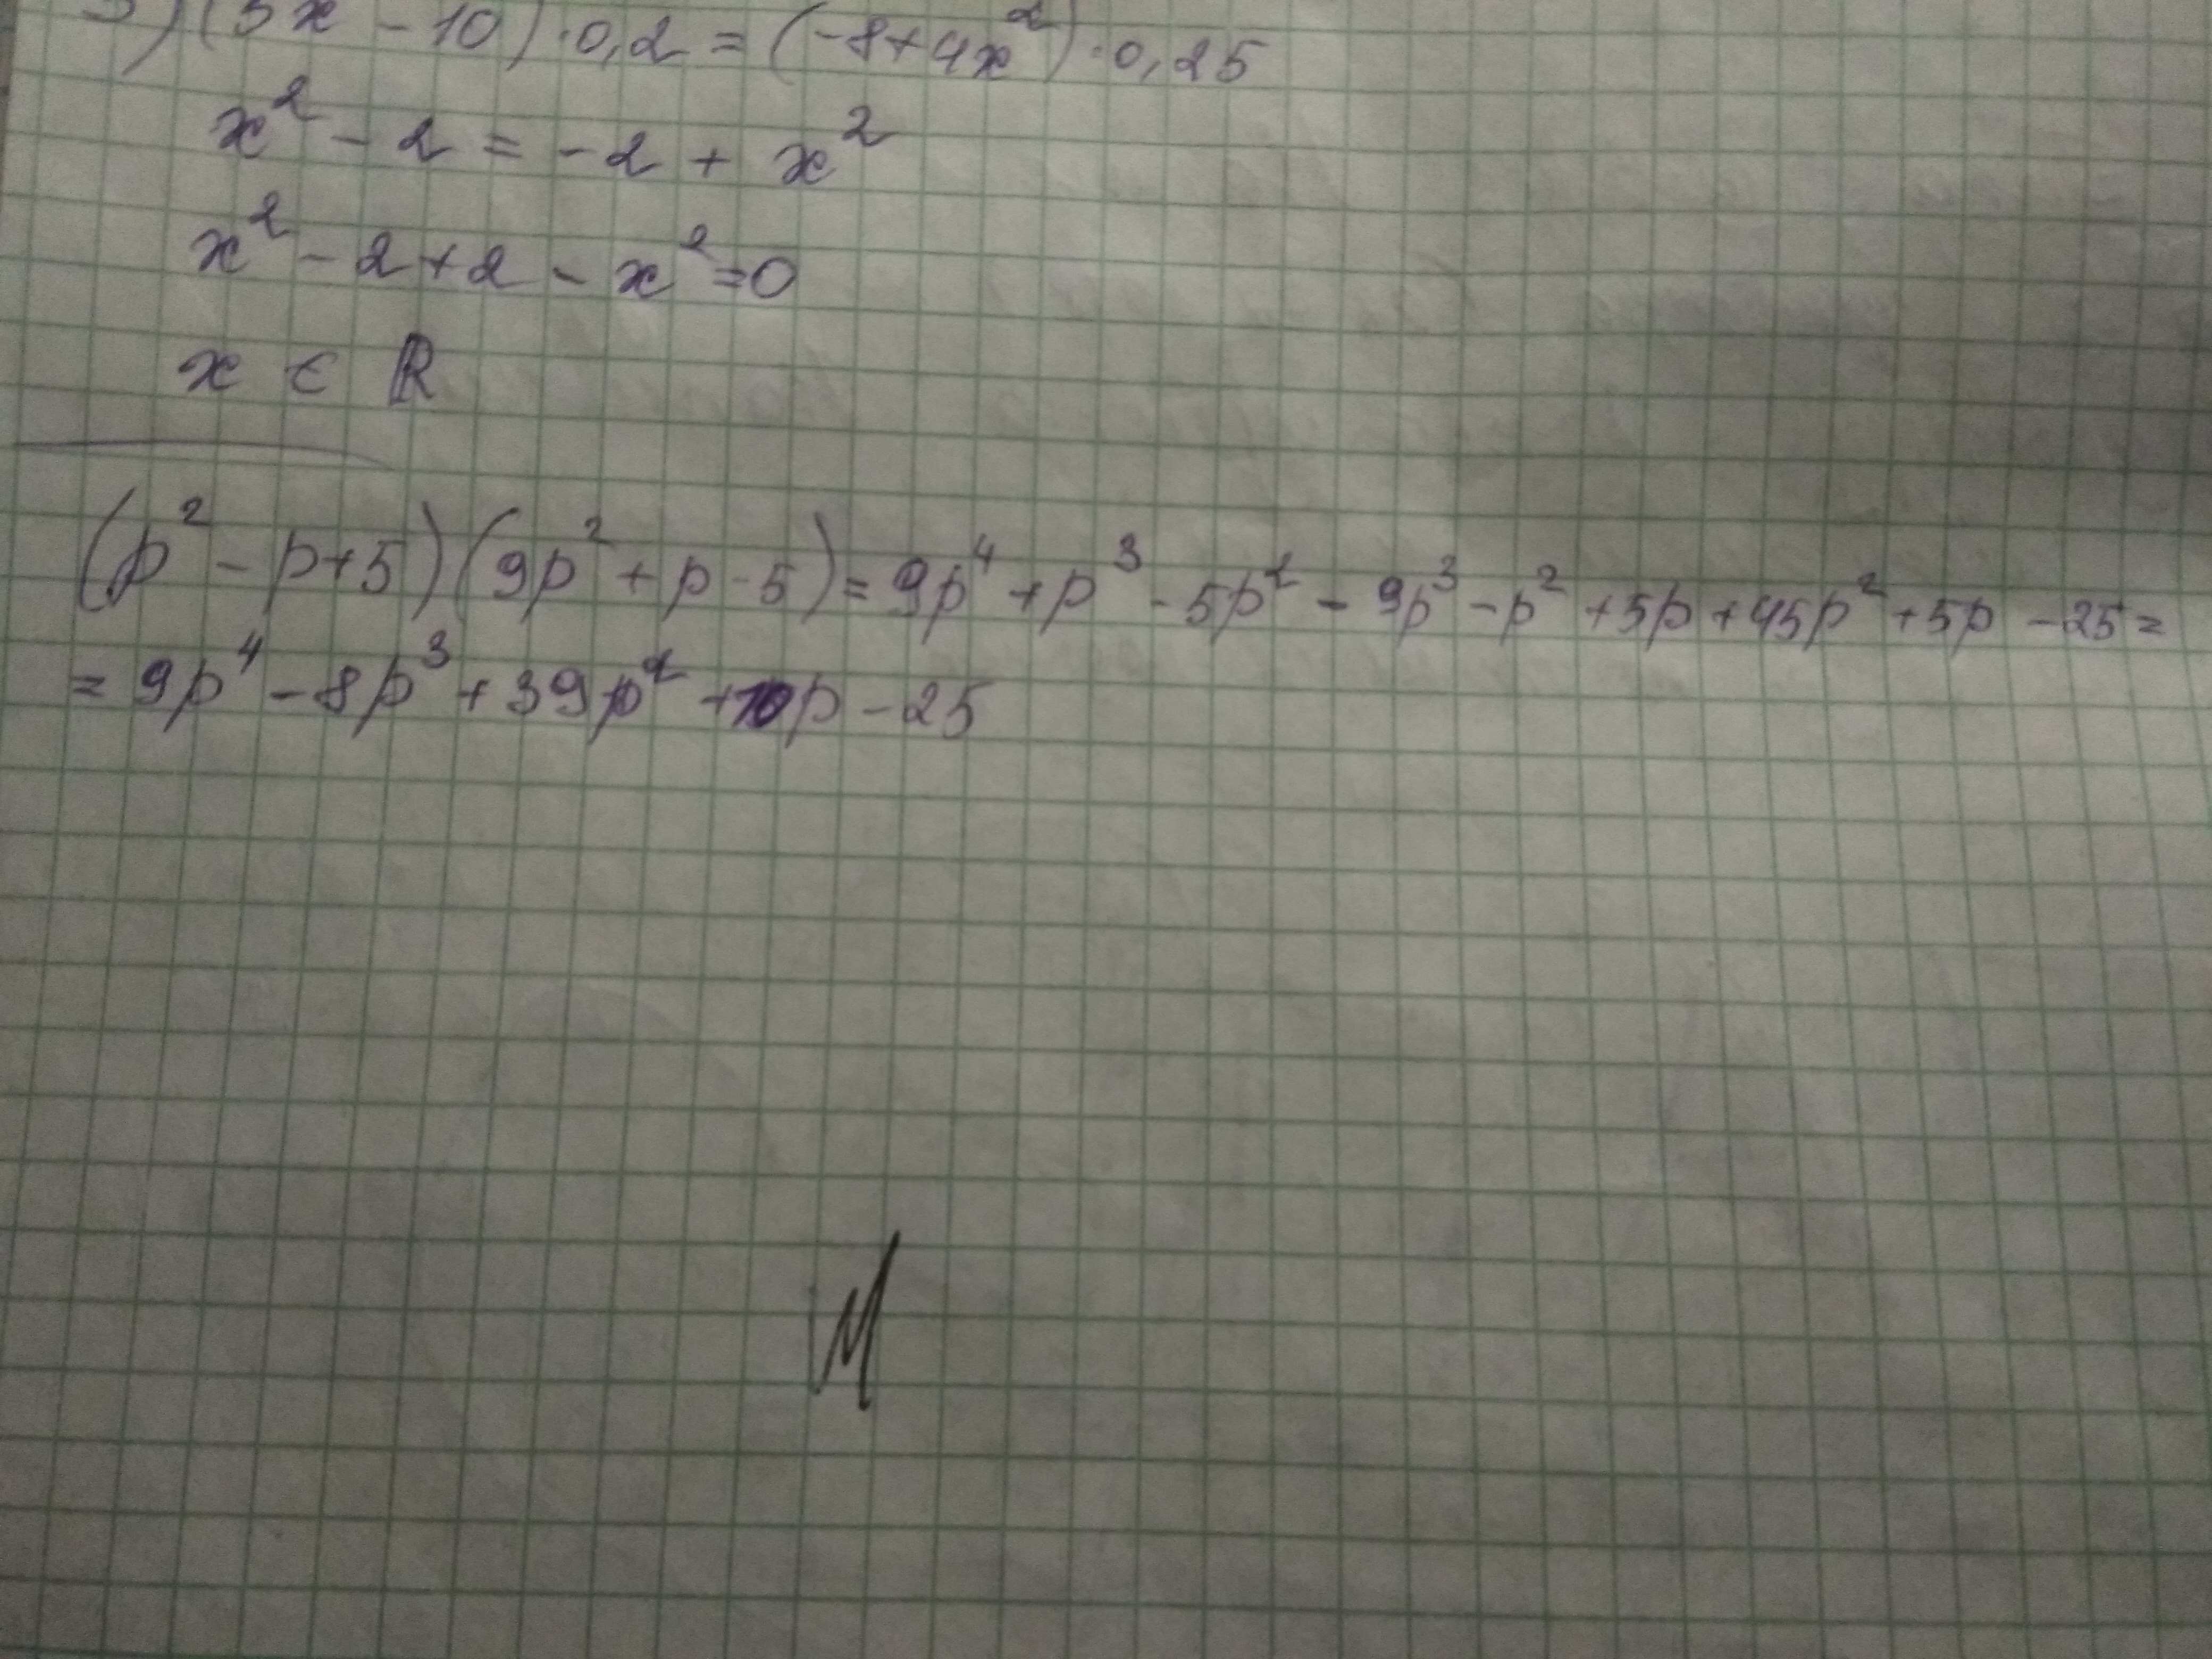 3) (5x - 10) · 0,2 = (-8 + 4x²) · 0,25
x² - 2 = -2 + x²
x² - 2 + 2 - x² = 0
x ∈ ℝ
(p² - p + 5)(9p² + p - 5) = 9p⁴ + p³ - 5p² - 9p³ - p² + 5p + 45p² + 5p - 25 =
= 9p⁴ - 8p³ + 39p² + 10p - 25
И